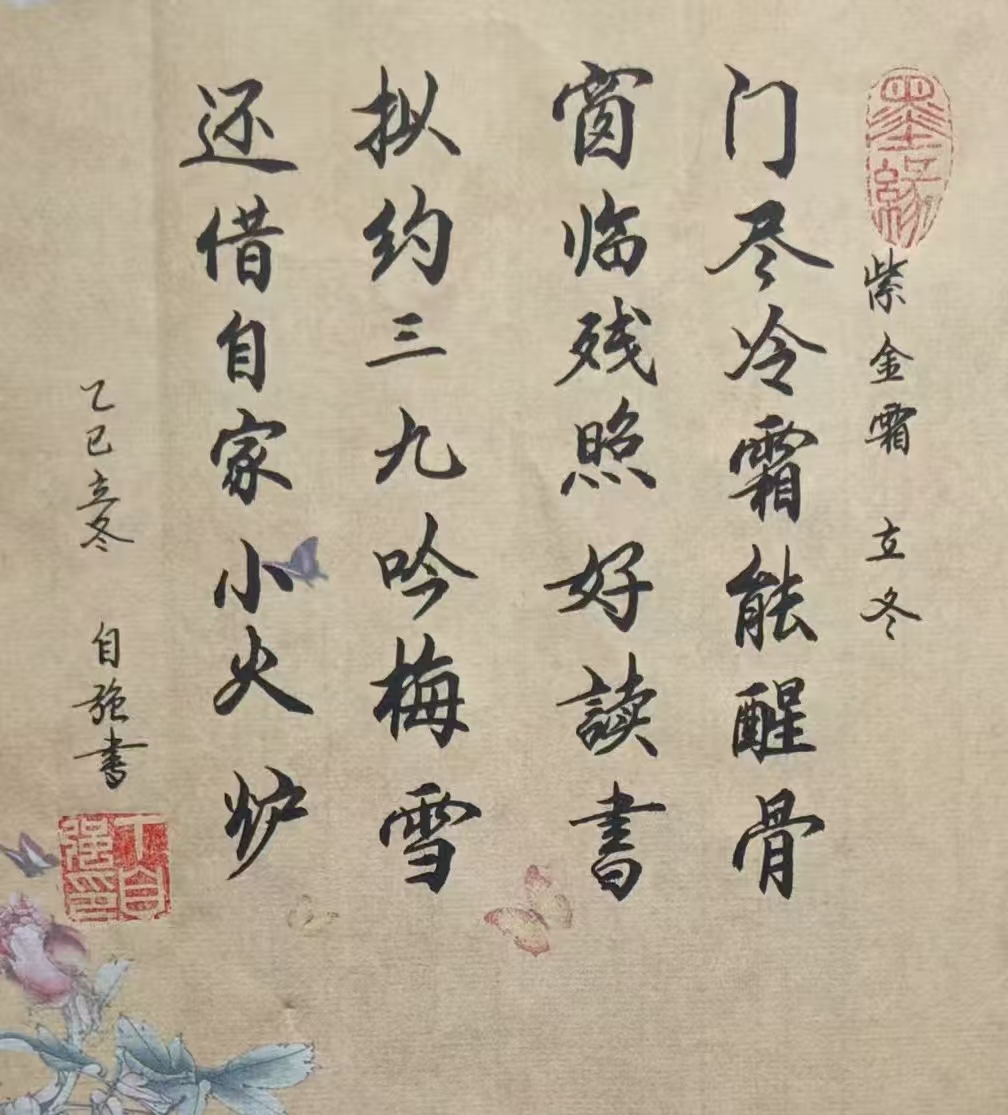 墨缘
紫金霜 立冬
门尽冷霜能醒骨
窗临残照好讀書
拟约三九吟梅雪
还借自家小火炉
乙巳立冬 自强書
丁自强印